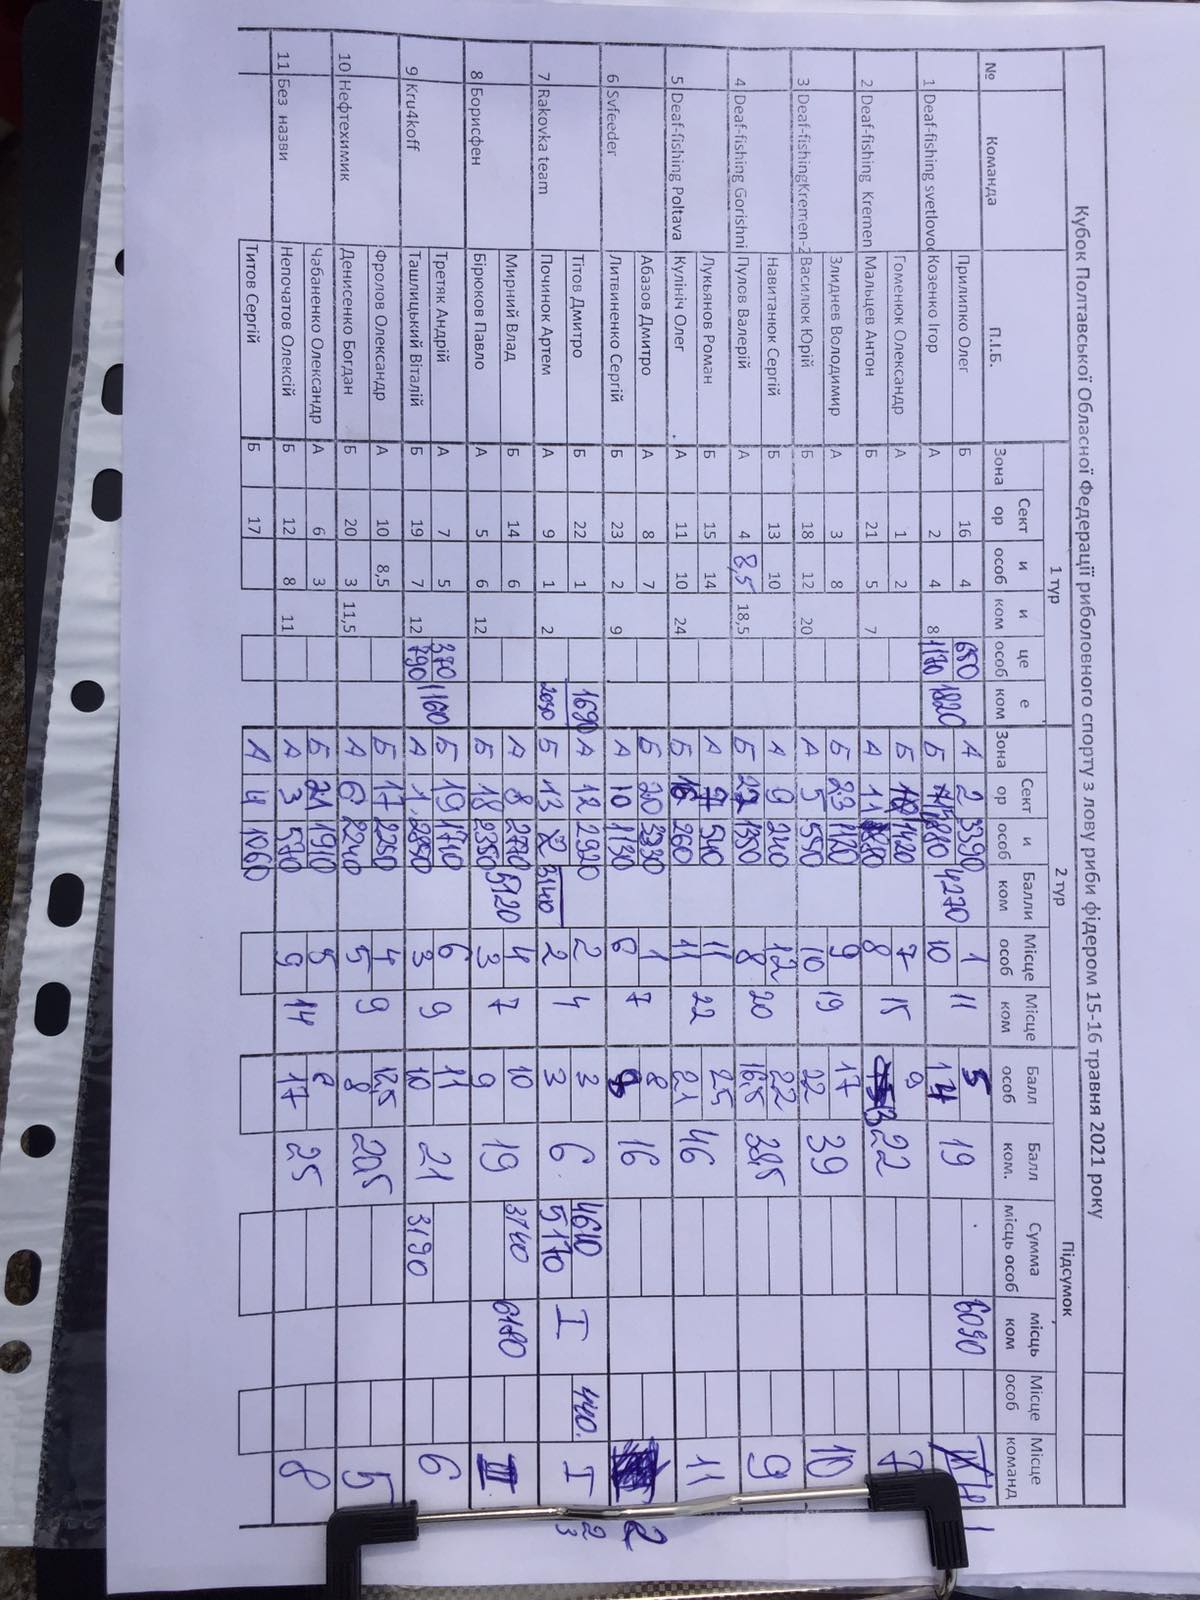 Кубок Полтавської Обласної Федерації риболовного спорту з лову риби фідером 15-16 травня 2021 року
1 тур 2 тур Підсумок
№ Команда П.І.Б. Зона Сект ор и особ и ком це особ е ком Зона Сект ор и особ Балли ком Місце особ Місце ком Балл особ Балл ком. Сумма місць особ місць ком Місце особ Місце команд
Прилипко Олег Б 16 4 650 А 2 3390 1 5
1 Deaf-fishing svetlovod Козенко Ігор А 2 4 8 1170 1820 Б 4270 10 11 14 19 6090
Гоменюк Олександр А 1 2 Б 1420 7 9
2 Deaf-fishing Kremen Мальцев Антон Б 21 5 7 А 11 8 15 13 22 7
Злиднев Володимир А 3 8 Б 23 1120 9 17
3 Deaf-fishingKremen-2 Василюк Юрій Б 18 12 20 А 5 550 10 19 22 39 10
Навитанюк Сергій Б 13 10 А 9 240 12 22
4 Deaf-fishing Gorishni Пулєв Валерій А 4 8,5 18,5 Б 22 1350 8 20 16,5 38,5 9
Лукьянов Роман Б 15 14 А 7 540 11 25
5 Deaf-fishing Poltava Кулініч Олег А 11 10 24 Б 16 260 11 22 21 46 11
Абазов Дмитро А 8 7 Б 20 3330 1 8
6 Svfeeder Литвиненко Сергій Б 23 2 9 А 10 1130 6 7 8 16 2
Тітов Дмитро Б 22 1 1690 А 12 2920 2 3 4610 440.
7 Rakovka team Починок Артем А 9 1 2 2030 Б 13 3140 2 4 3 6 5170 I I 2 3
Мирний Влад Б 14 6 А 8 2770 4 10 3740
8 Борисфен Бірюков Павло А 5 6 12 Б 18 2350 5120 3 7 9 19 III
Третяк Андрій А 7 5 370 Б 19 1710 6 11
9 Kru4koff Ташлицький Віталій Б 19 7 12 790 1160 А 1 2850 3 9 10 21 3190 6
Фролов Олександр А 10 8,5 Б 17 2250 4 12,5
10 Нефтехимик Денисенко Богдан Б 20 3 11,5 А 6 2240 5 9 8 20,5 5
Чабаненко Олександр А 6 3 Б 21 1910 5 8
11 Без назви Непочатов Олексій Б 12 8 11 А 3 570 9 14 17 25 8
Титов Сергій Б 17 А 4 1060